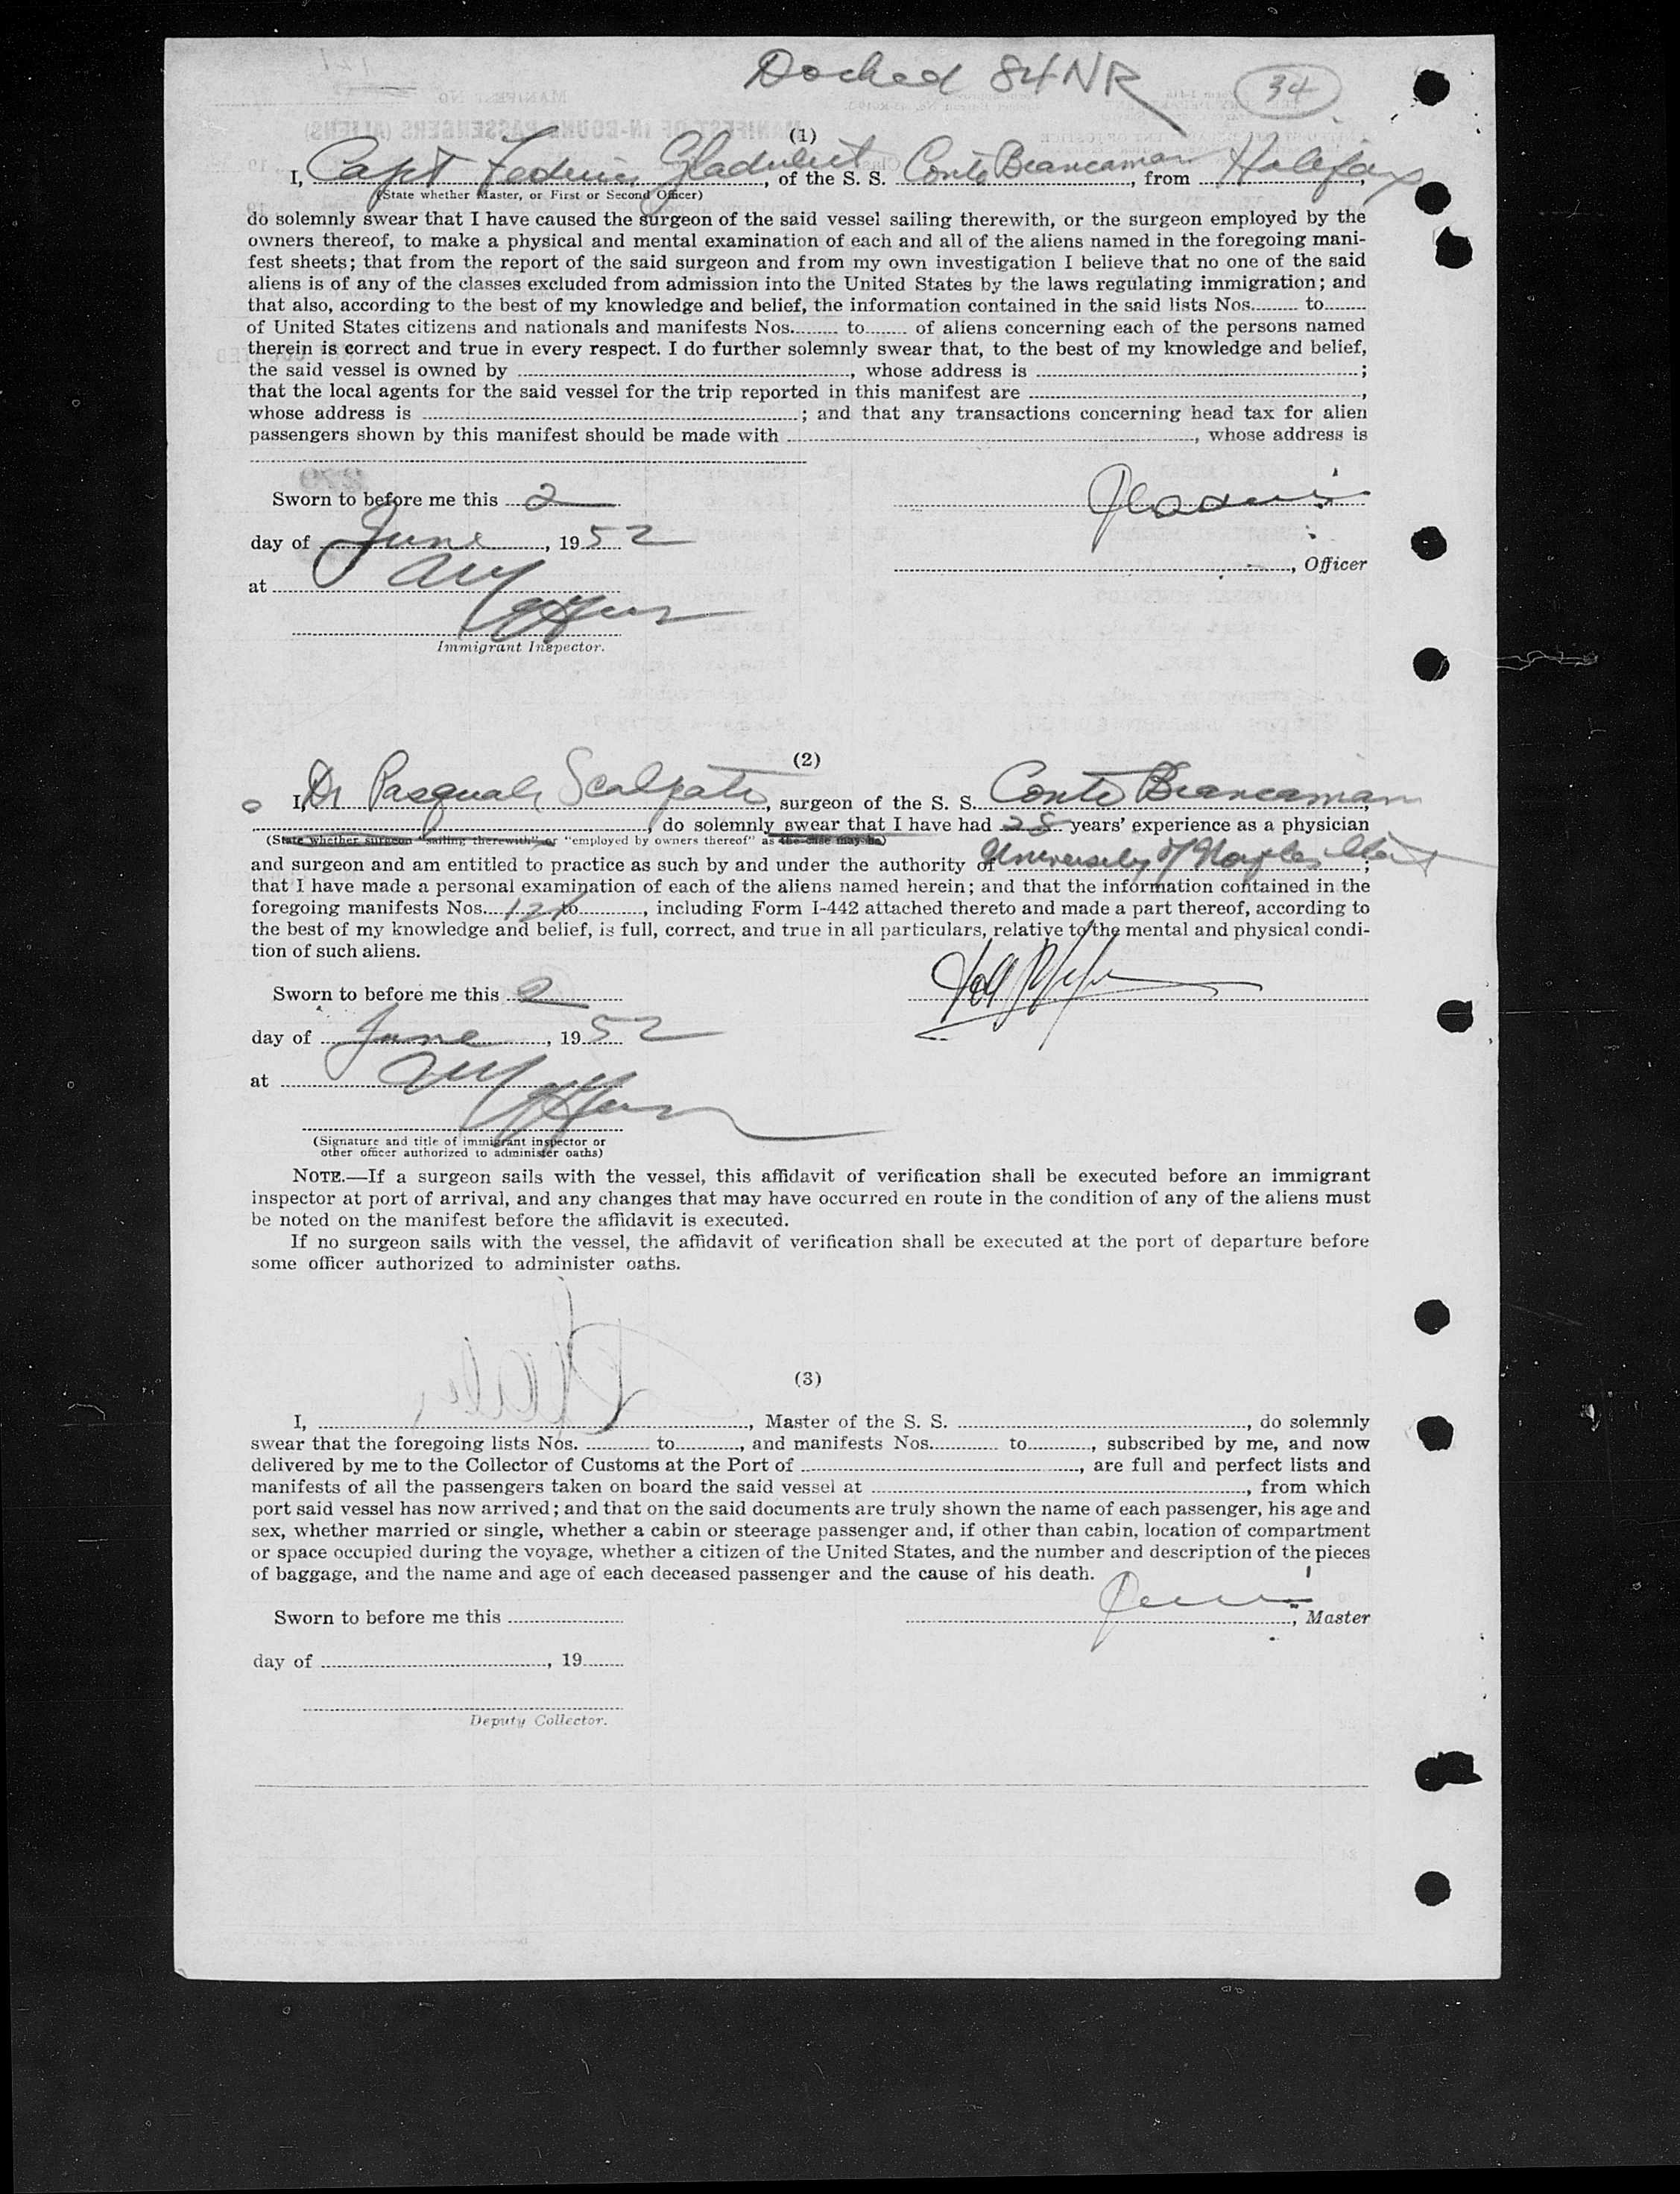 Docked 84 NR 34
(1)
I, Capt , of the S. S. Conte Biancaman, from Halifax,
(State whether Master, or First or Second Officer)
do solemnly swear that I have caused the surgeon of the said vessel sailing therewith, or the surgeon employed by the
owners thereof, to make a physical and mental examination of each and all of the aliens named in the foregoing mani-
fest sheets; that from the report of the said surgeon and from my own investigation I believe that no one of the said
aliens is of any of the classes excluded from admission into the United States by the laws regulating immigration; and
that also, according to the best of my knowledge and belief, the information contained in the said lists Nos. to
of United States citizens and nationals and manifests Nos. to of aliens concerning each of the persons named
therein is correct and true in every respect. I do further solemnly swear that, to the best of my knowledge and belief,
the said vessel is owned by , whose address is ;
that the local agents for the said vessel for the trip reported in this manifest are ,
whose address is ; and that any transactions concerning head tax for alien
passengers shown by this manifest should be made with , whose address is
Sworn to before me this 2
day of June, 1952
, Officer
at NY
Immigrant Inspector.
(2)
I, Dr Pasquale , surgeon of the S. S. Conte Biancaman,
, do solemnly swear that I have had 28 years' experience as a physician
(State whether surgeon "sailing therewith" or "employed by owners thereof" as the case may be)
and surgeon and am entitled to practice as such by and under the authority of University of Naples ;
that I have made a personal examination of each of the aliens named herein; and that the information contained in the
foregoing manifests Nos. 121 to , including Form I-442 attached thereto and made a part thereof, according to
the best of my knowledge and belief, is full, correct, and true in all particulars, relative to the mental and physical condi-
tion of such aliens.
Sworn to before me this 2
day of June, 1952
at NY
(Signature and title of immigrant inspector or
other officer authorized to administer oaths)
NOTE.—If a surgeon sails with the vessel, this affidavit of verification shall be executed before an immigrant
inspector at port of arrival, and any changes that may have occurred en route in the condition of any of the aliens must
be noted on the manifest before the affidavit is executed.
If no surgeon sails with the vessel, the affidavit of verification shall be executed at the port of departure before
some officer authorized to administer oaths.
(3)
I, , Master of the S. S. , do solemnly
swear that the foregoing lists Nos. to , and manifests Nos. to , subscribed by me, and now
delivered by me to the Collector of Customs at the Port of , are full and perfect lists and
manifests of all the passengers taken on board the said vessel at , from which
port said vessel has now arrived; and that on the said documents are truly shown the name of each passenger, his age and
sex, whether married or single, whether a cabin or steerage passenger and, if other than cabin, location of compartment
or space occupied during the voyage, whether a citizen of the United States, and the number and description of the pieces
of baggage, and the name and age of each deceased passenger and the cause of his death.
Sworn to before me this , Master
day of , 19
Deputy Collector.